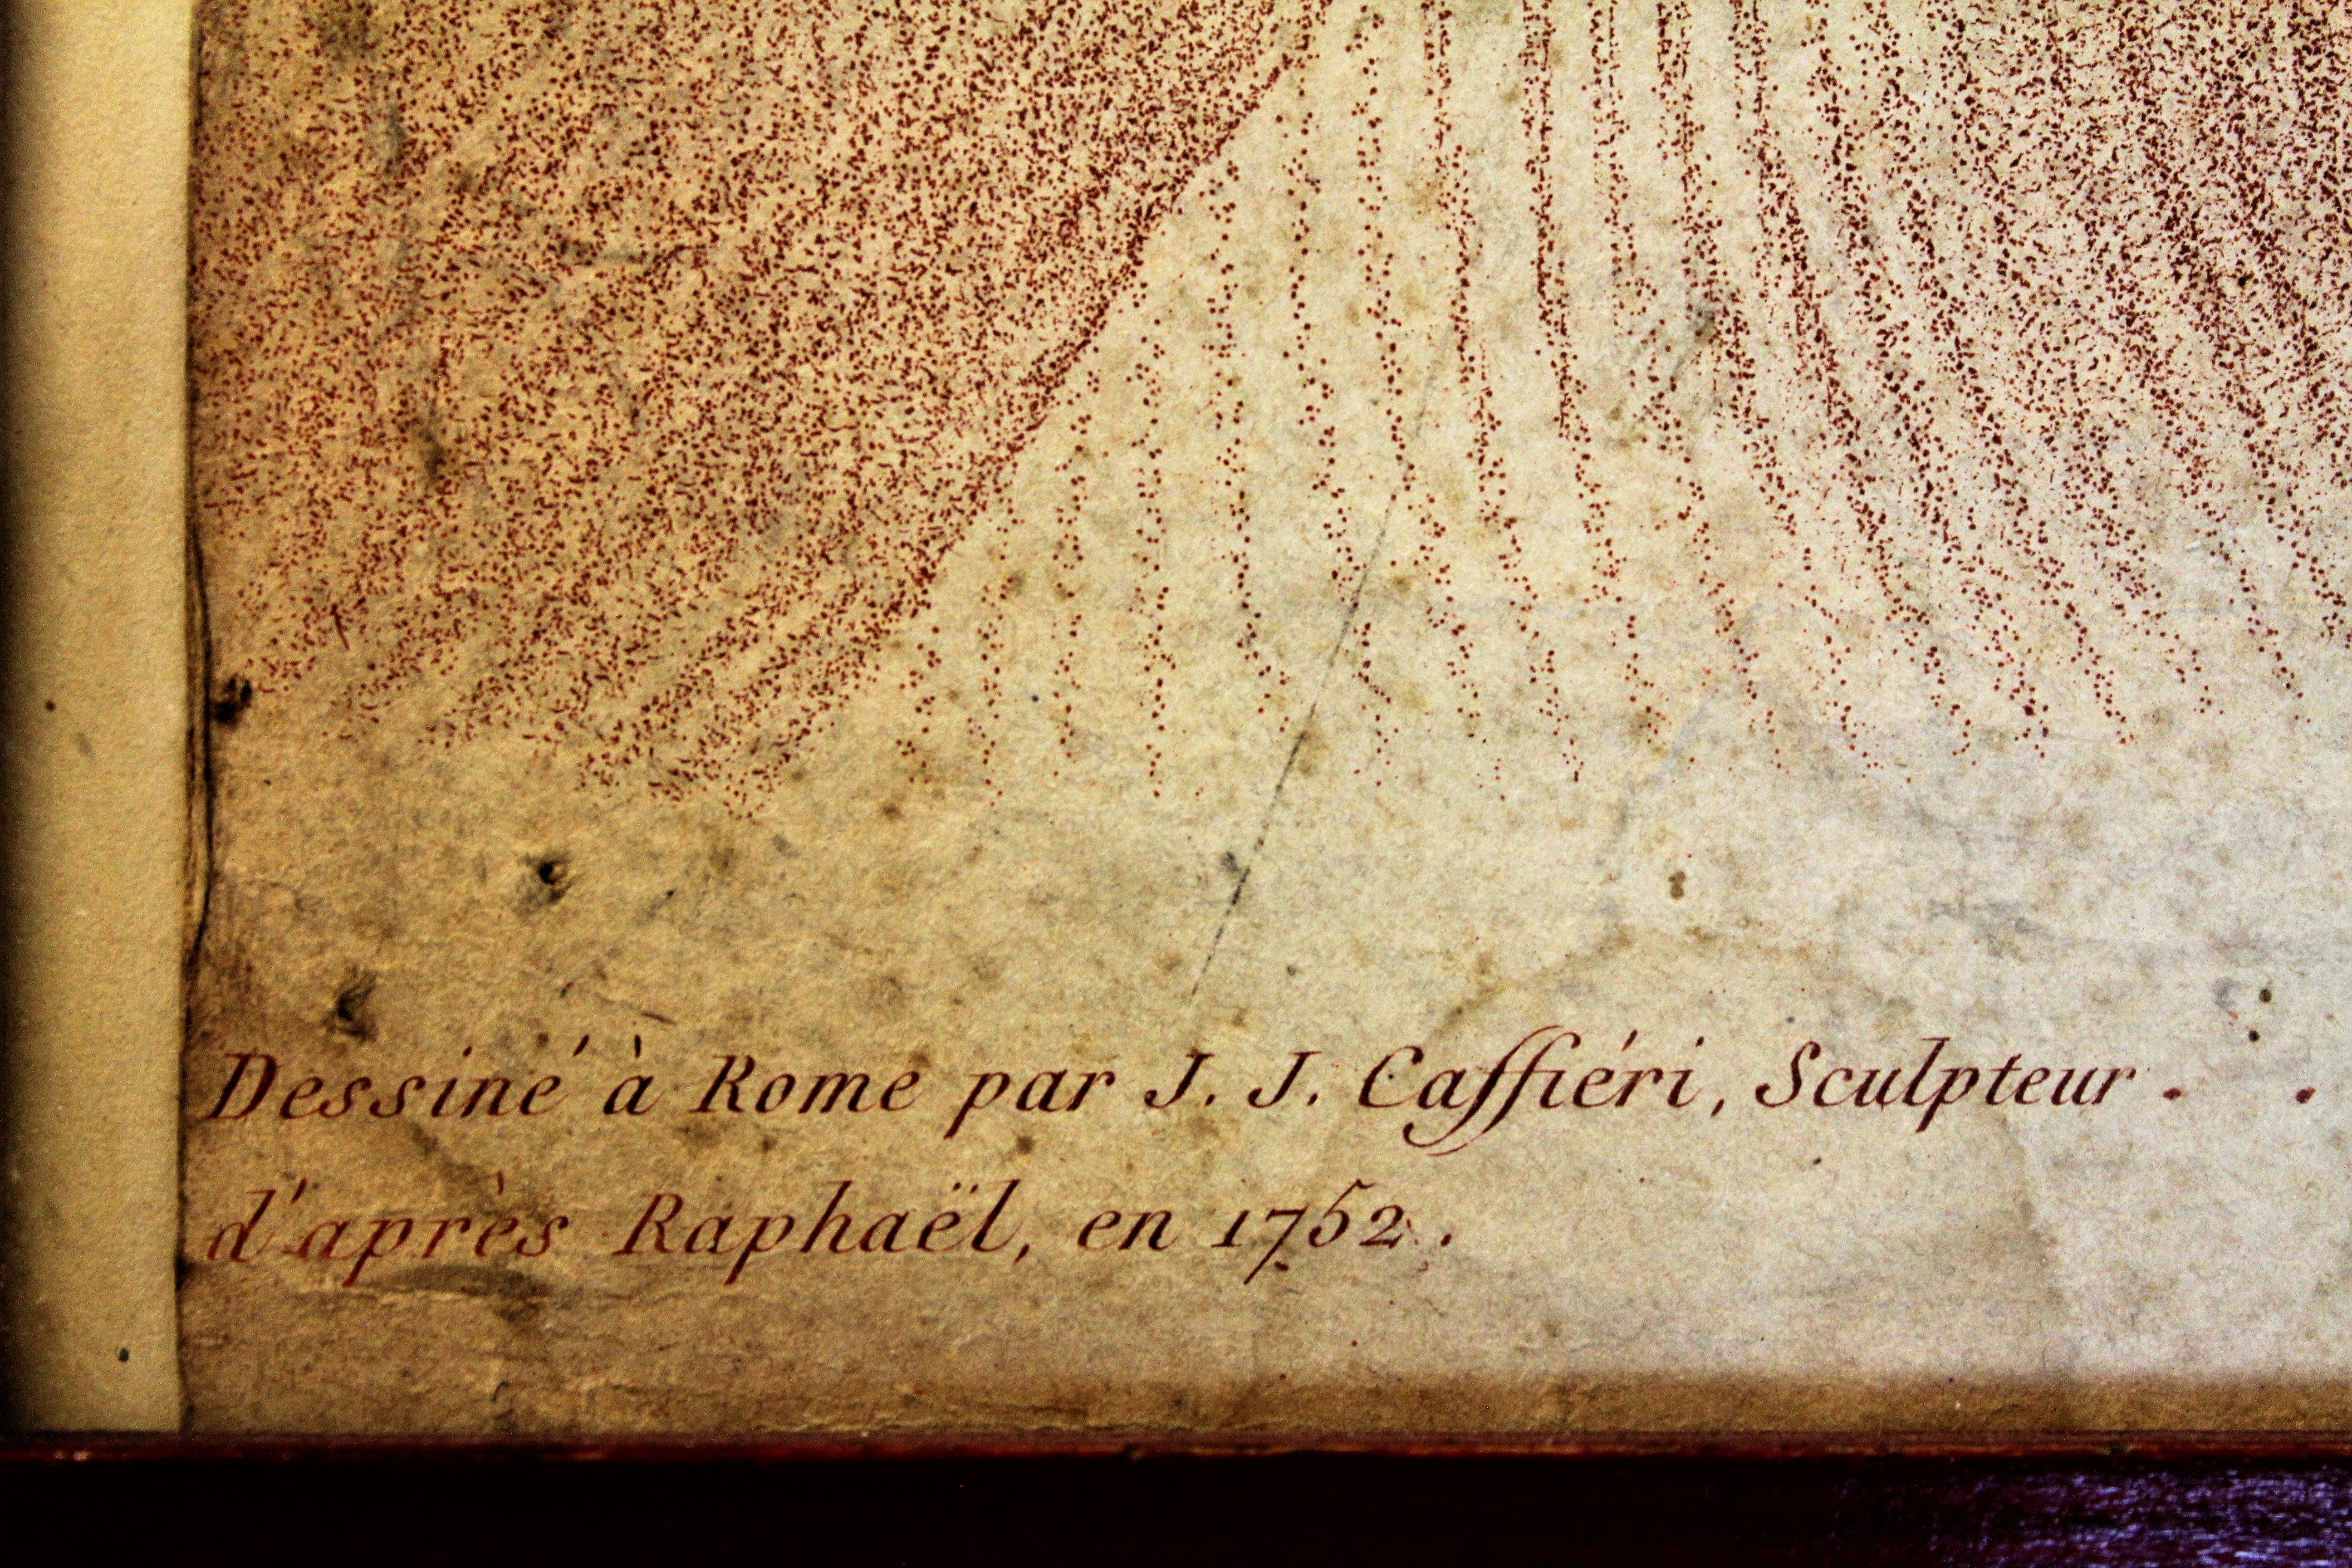 Dessiné à Rome par J. J. Caffiéri, Sculpteur . .
d'après Raphaël, en 1752.